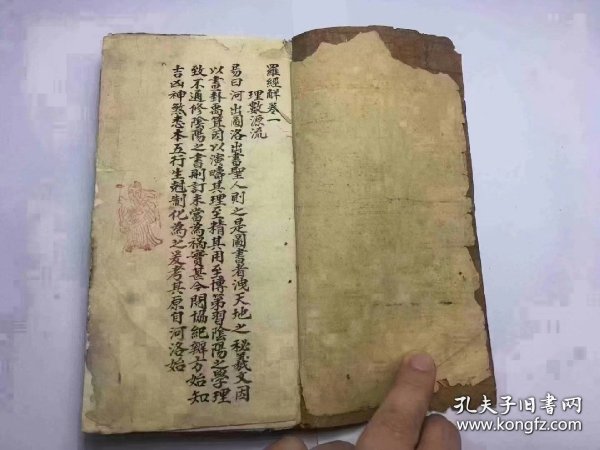 羅經解卷一
理數源流
易曰河出圖洛出書聖人則之是圖書者洩天地之秘羲文因
以畫卦禹箕因以演疇其理至精其用至博第習陰陽之學理
致不通修陰陽之書刪訂未當為禍實甚今閱協紀辯方始知
吉凶神煞悉本五行生尅制化為之爰考其原自河洛始
孔夫子旧书网
www.kongfz.com